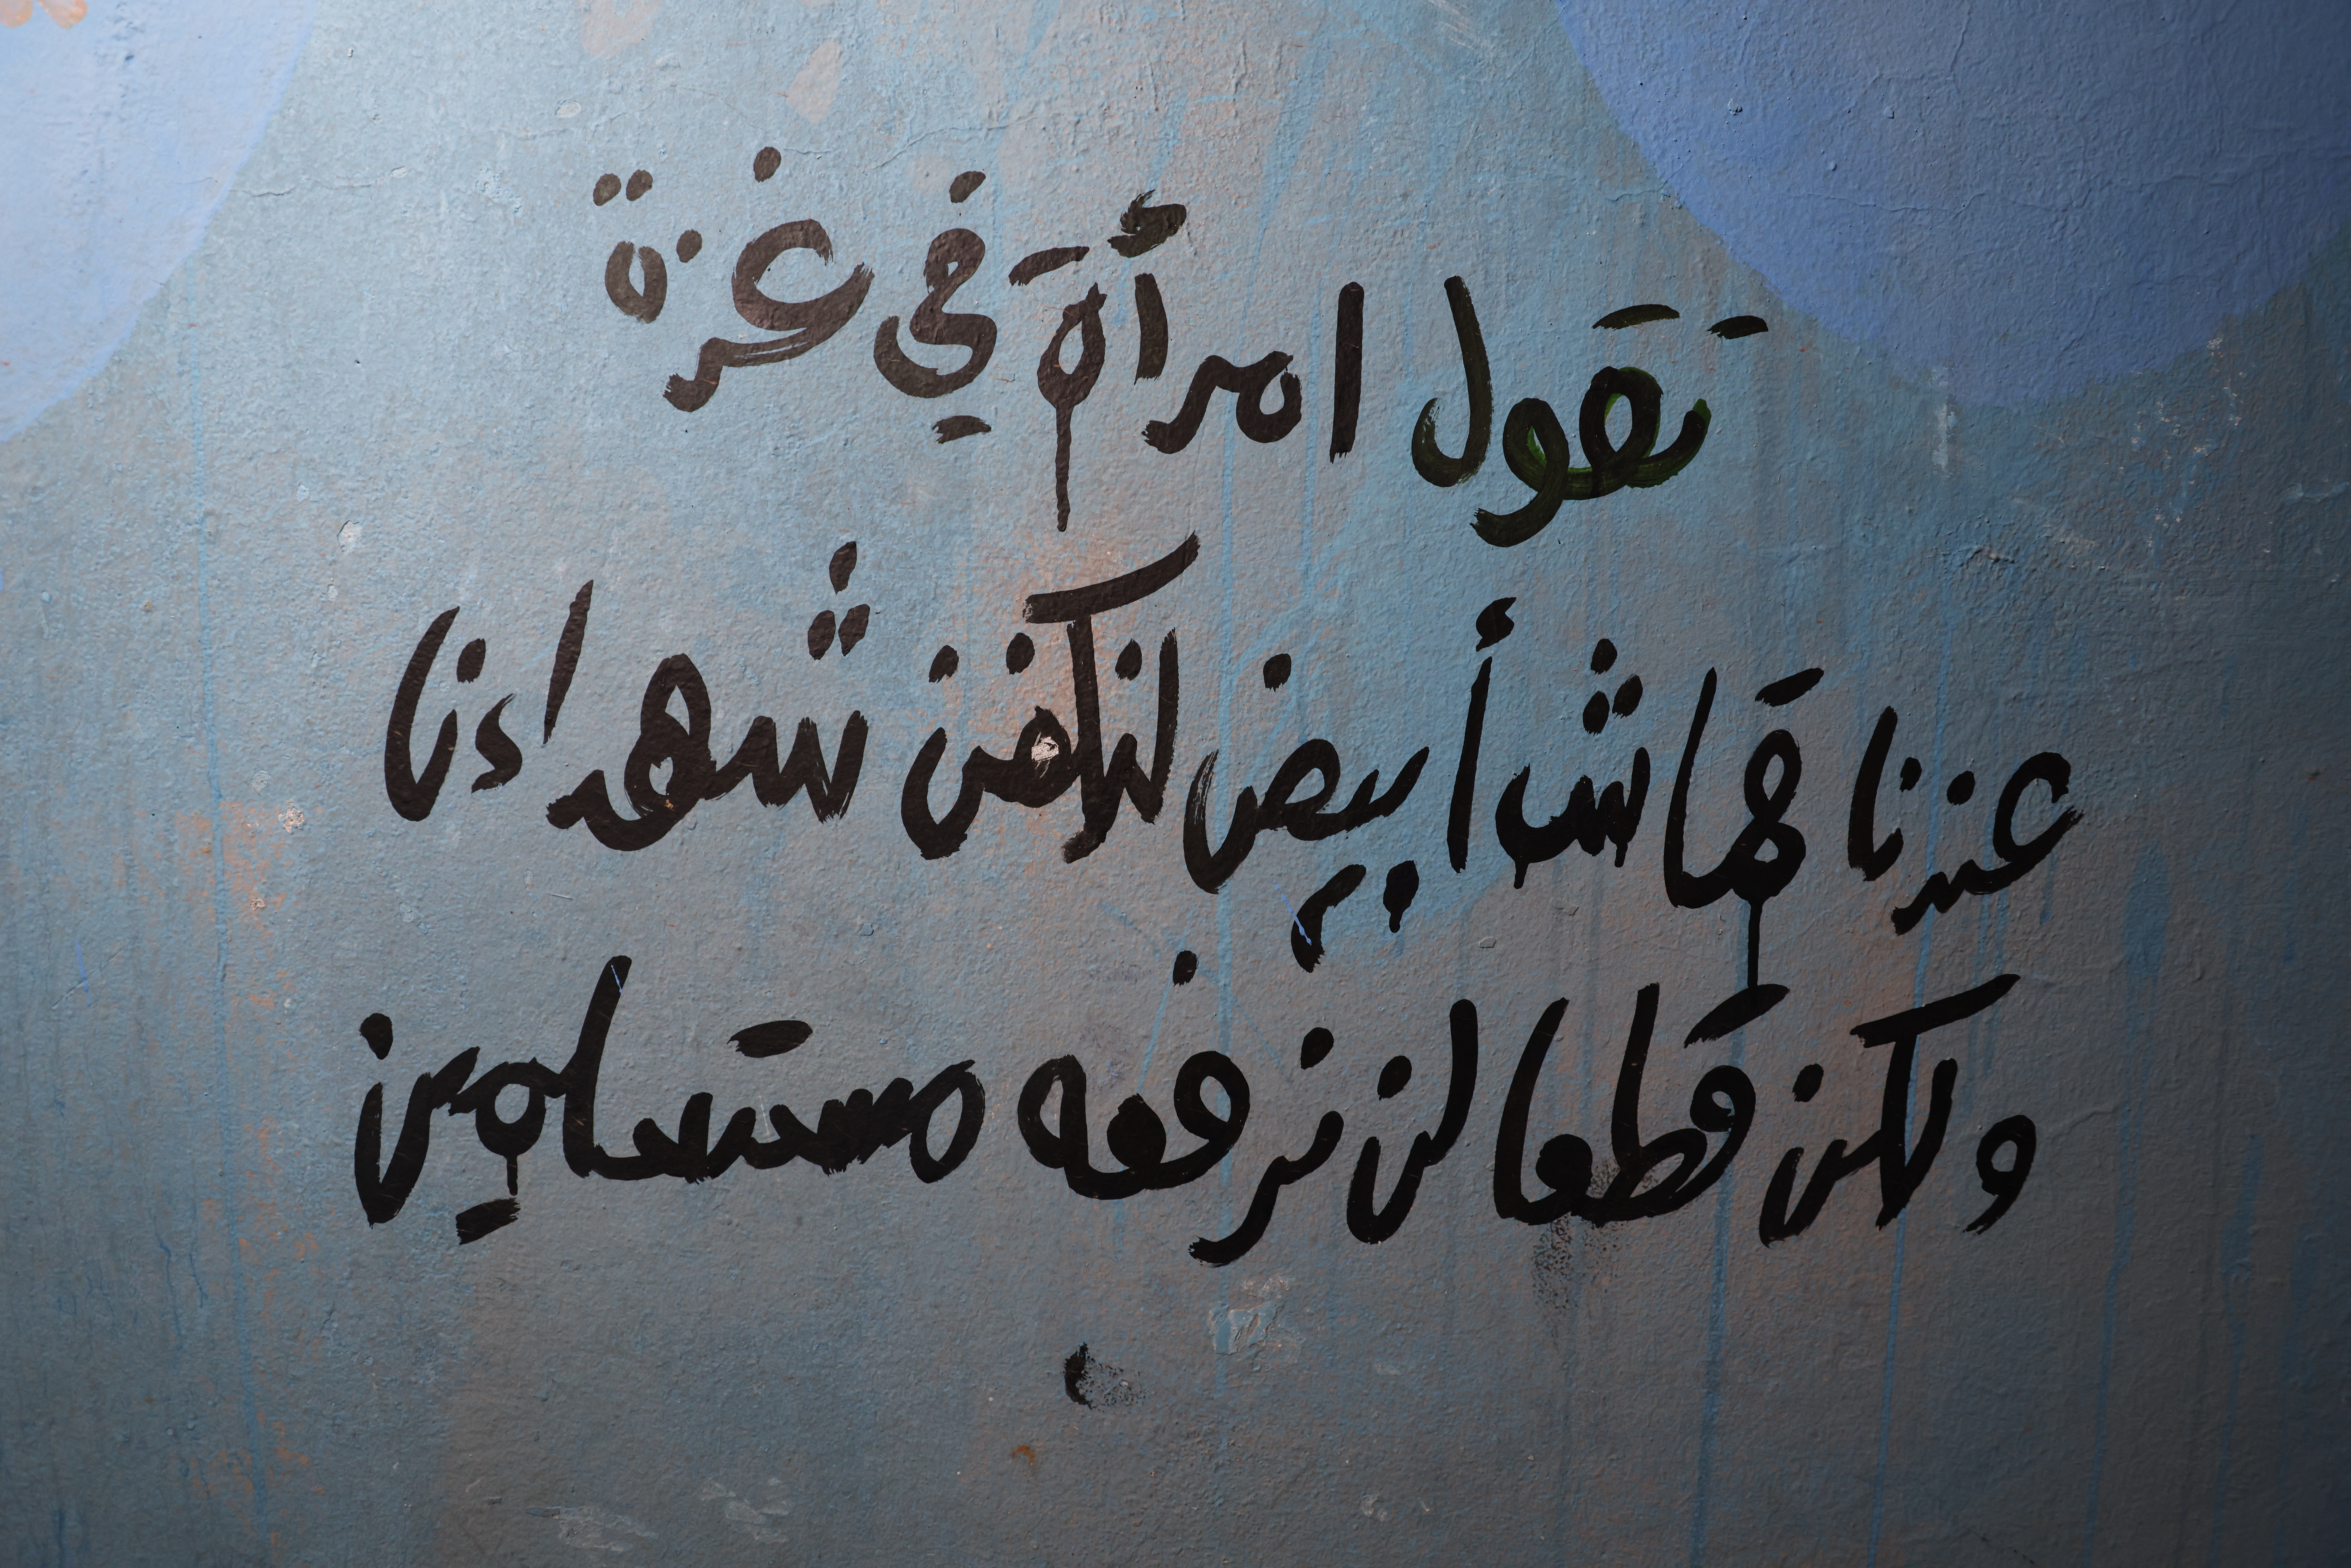 تقول امرأة في غزة
عندنا قماش أبيض لنكفن شهداءنا
ولكن قطعا لن نرفعه مستسلمين